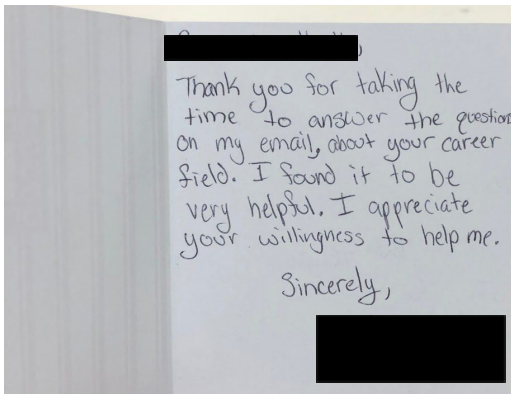 Thank you for taking the
time to answer the question
on my email, about your career
field. I found it to be
very helpful. I appreciate
your willingness to help me.
Sincerely,